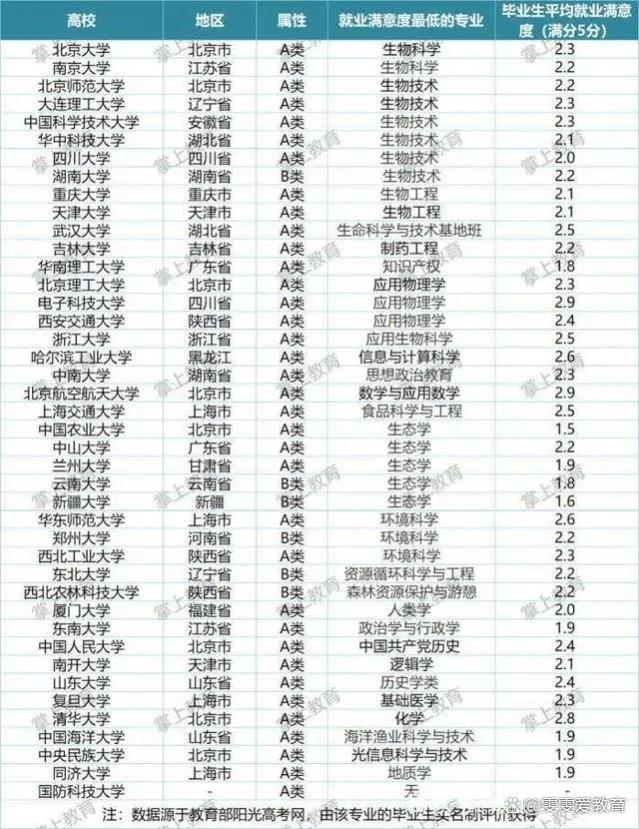 高校 地区 属性 就业满意度最低的专业 毕业生平均就业满意度（满分5分）
北京大学 北京市 A类 生物科学 2.3
南京大学 江苏省 A类 生物科学 2.2
北京师范大学 北京市 A类 生物技术 2.2
大连理工大学 辽宁省 A类 生物技术 2.3
中国科学技术大学 安徽省 A类 生物技术 2.3
华中科技大学 湖北省 A类 生物技术 2.1
四川大学 四川省 A类 生物技术 2.0
湖南大学 湖南省 B类 生物技术 2.2
重庆大学 重庆市 A类 生物工程 2.1
天津大学 天津市 A类 生物工程 2.1
武汉大学 湖北省 A类 生命科学与技术基地班 2.5
吉林大学 吉林省 A类 制药工程 2.2
华南理工大学 广东省 A类 知识产权 1.8
北京理工大学 北京市 A类 应用物理学 2.3
电子科技大学 四川省 A类 应用物理学 2.9
西安交通大学 陕西省 A类 应用物理学 2.4
浙江大学 浙江省 A类 应用生物科学 2.5
哈尔滨工业大学 黑龙江 A类 信息与计算科学 2.6
中南大学 湖南省 A类 思想政治教育 2.3
北京航空航天大学 北京市 A类 数学与应用数学 2.9
上海交通大学 上海市 A类 食品科学与工程 2.5
中国农业大学 北京市 A类 生态学 1.5
中山大学 广东省 A类 生态学 2.2
兰州大学 甘肃省 A类 生态学 1.9
云南大学 云南省 B类 生态学 1.8
新疆大学 新疆 B类 生态学 1.6
华东师范大学 上海市 A类 环境科学 2.6
郑州大学 河南省 B类 环境科学 2.2
西北工业大学 陕西省 A类 环境科学 2.3
东北大学 辽宁省 B类 资源循环科学与工程 2.2
西北农林科技大学 陕西省 B类 森林资源保护与游憩 2.2
厦门大学 福建省 A类 人类学 2.0
东南大学 江苏省 A类 政治学与行政学 1.9
中国人民大学 北京市 A类 中国共产党历史 2.4
南开大学 天津市 A类 逻辑学 2.1
山东大学 山东省 A类 历史学类 2.4
复旦大学 上海市 A类 基础医学 2.3
清华大学 北京市 A类 化学 2.8
中国海洋大学 山东省 A类 海洋渔业科学与技术 1.9
中央民族大学 北京市 A类 光信息科学与技术 1.9
同济大学 上海市 A类 地质学 1.9
国防科技大学 - A类 无 -
注：数据源于教育部阳光高考网，由该专业的毕业生实名制评价获得
掌上教育
@雯雯爱教育